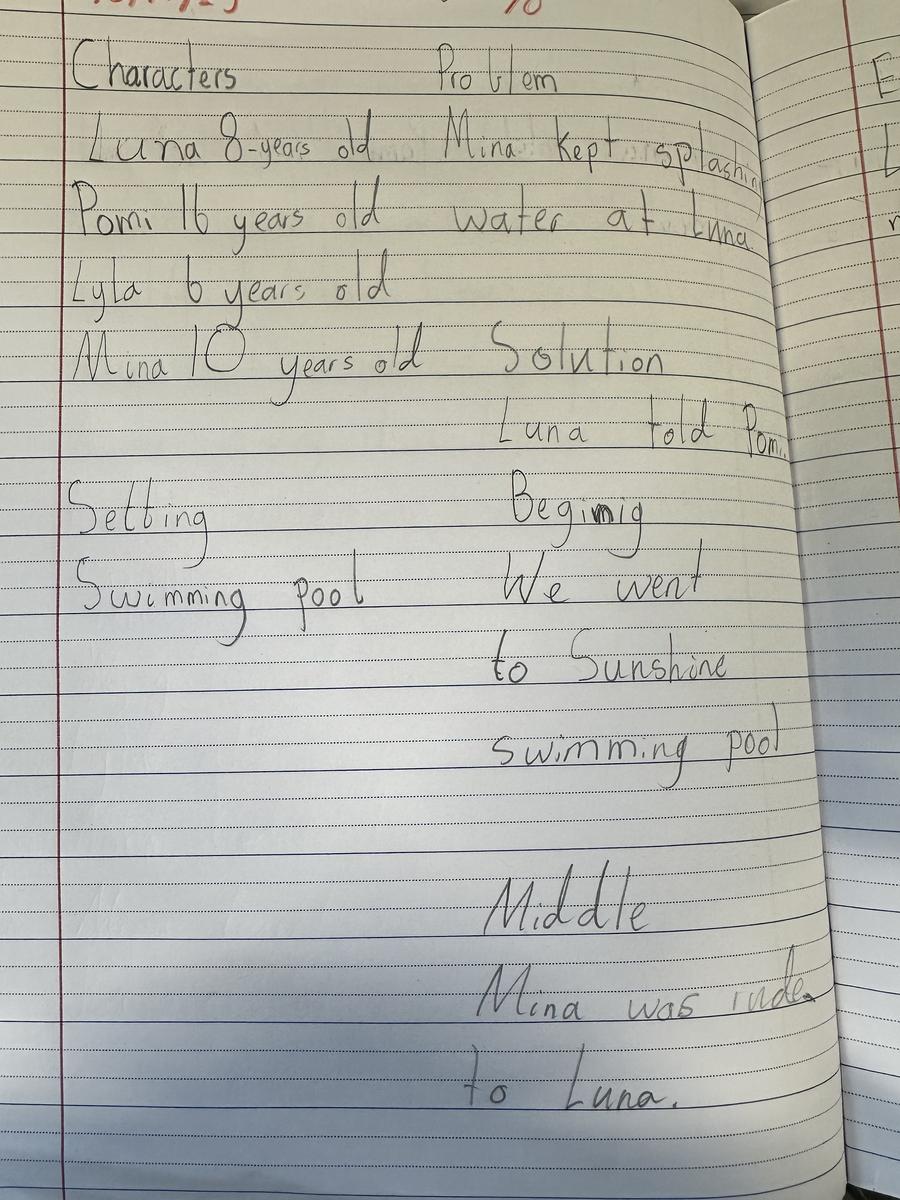 Characters
Luna 8-years old
Pomi 16 years old
Lyla 6 years old
Mina 10 years old
Setting
Swimming pool
Problem
Mina kept splashin
water at Luna
Solution
Luna told Pomi
Begimig
We went
to Sunshine
swimming pool
Middle
Mina was rude
to Luna.